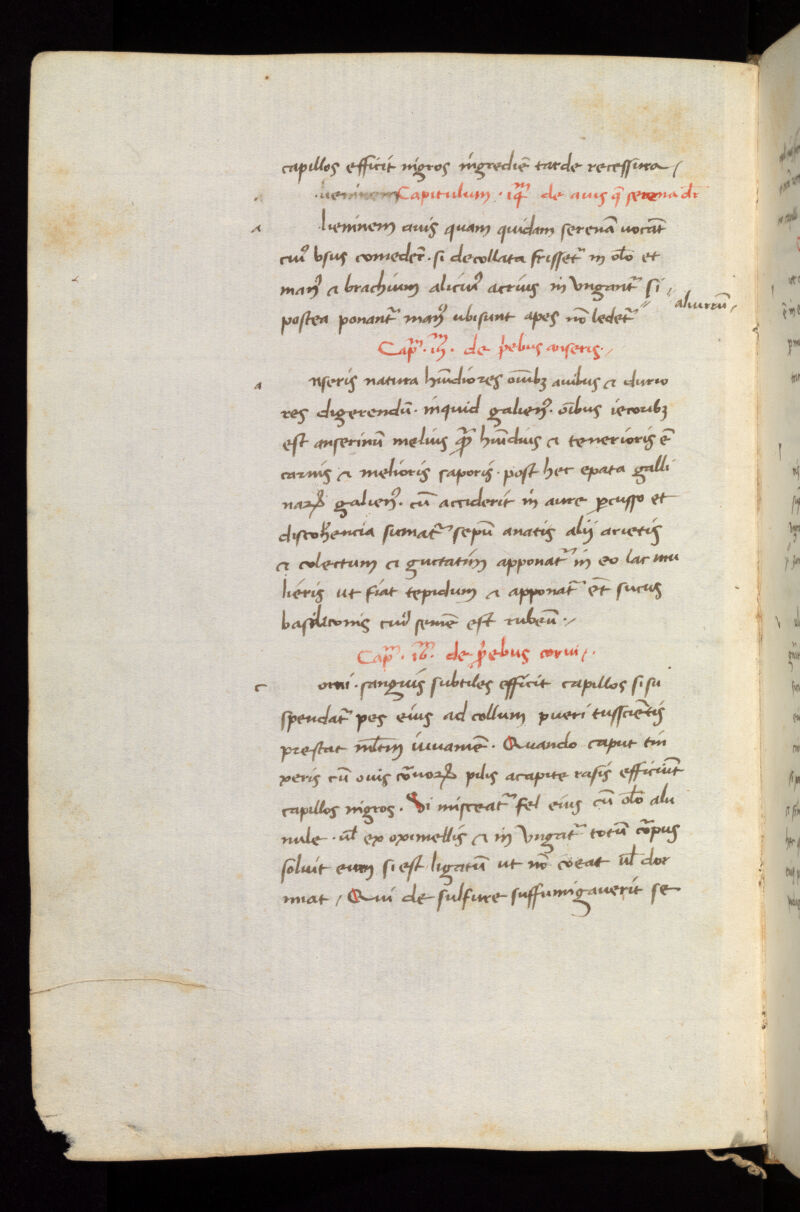 capillos efficit nigros ingrediē tarde recessura /
Capitulum · de auis q̄ serena dr
a lieninem auis quam quidam serenā uocāt
cui⁹ vsus comeder̄ · si decollata frisset᷑ in ol̄o et
man⁹ & brachium alicui⁹ acrius in vngant᷑ si //
postea ponant᷑ man⁹ ubi sunt apes nō ledet᷑ // aluurū /
Cap̄ · iij · de p̄ebus anseris · /
a nseris natura hūidiores om̄ibꝫ auibus & durio
res digerendū · inquid galien⁹ · oībus iecoribꝫ
est anserinū melius q̄ hūidius & tenerioris ē
carnis & melioris saporis · post hec epata galli
naꝝ galien⁹ · cū acciderit in aure ꝑcussio et
sumat᷑ sepū anatis alij arietis
& colectum & guttatim apponat᷑ in eo lac mu
lieris ut fiat tepidum & apponat᷑ et̄ sucus
basiliconis cui⁹ semē est rubeū · /
Cap̄ · de p̄ebus corui / ·
c orui · sanguis subtiles efficit capillos si su
spendat᷑ pes eius ad collum pueri tuscientis
prestat mltm̄ iuuamē · Quando caput tin
xeris cū ouis coruoꝝ pilis a capite rasis efficiūt
capillos nigros · Si misceat᷑ fel eius cū ol̄o alu
nule · ul̄ ex oximellis & in vngat᷑ totū corpus
soluit eum si est ligatū ut nō coeat ul̄ dor
miat / Qui de sulfure suffumigauerit se